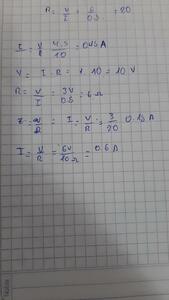 R = V/I = 6/0.3 = 20
I = V/R = 4.5/10 = 0.45 A
V = I R = 1 . 10 = 10 V
R = V/I = 3V/0.5 = 6 Ω
I = V/R = I = V/R = 3/20 0.15 A
I = V/R = 6V/10Ω = 0.6 A